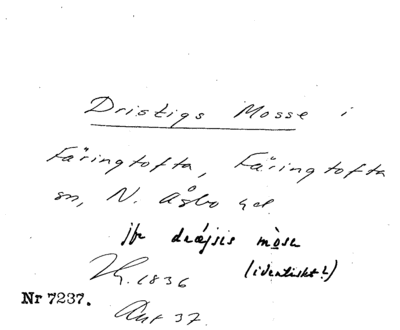 Dristigs Mosse i
Färingtofta, Färingtofta
sn, N. Åsbo hd
jfr dräjsis mòse
(identiskt?)
Lh. 1836
Nr 7237.
Ant 37